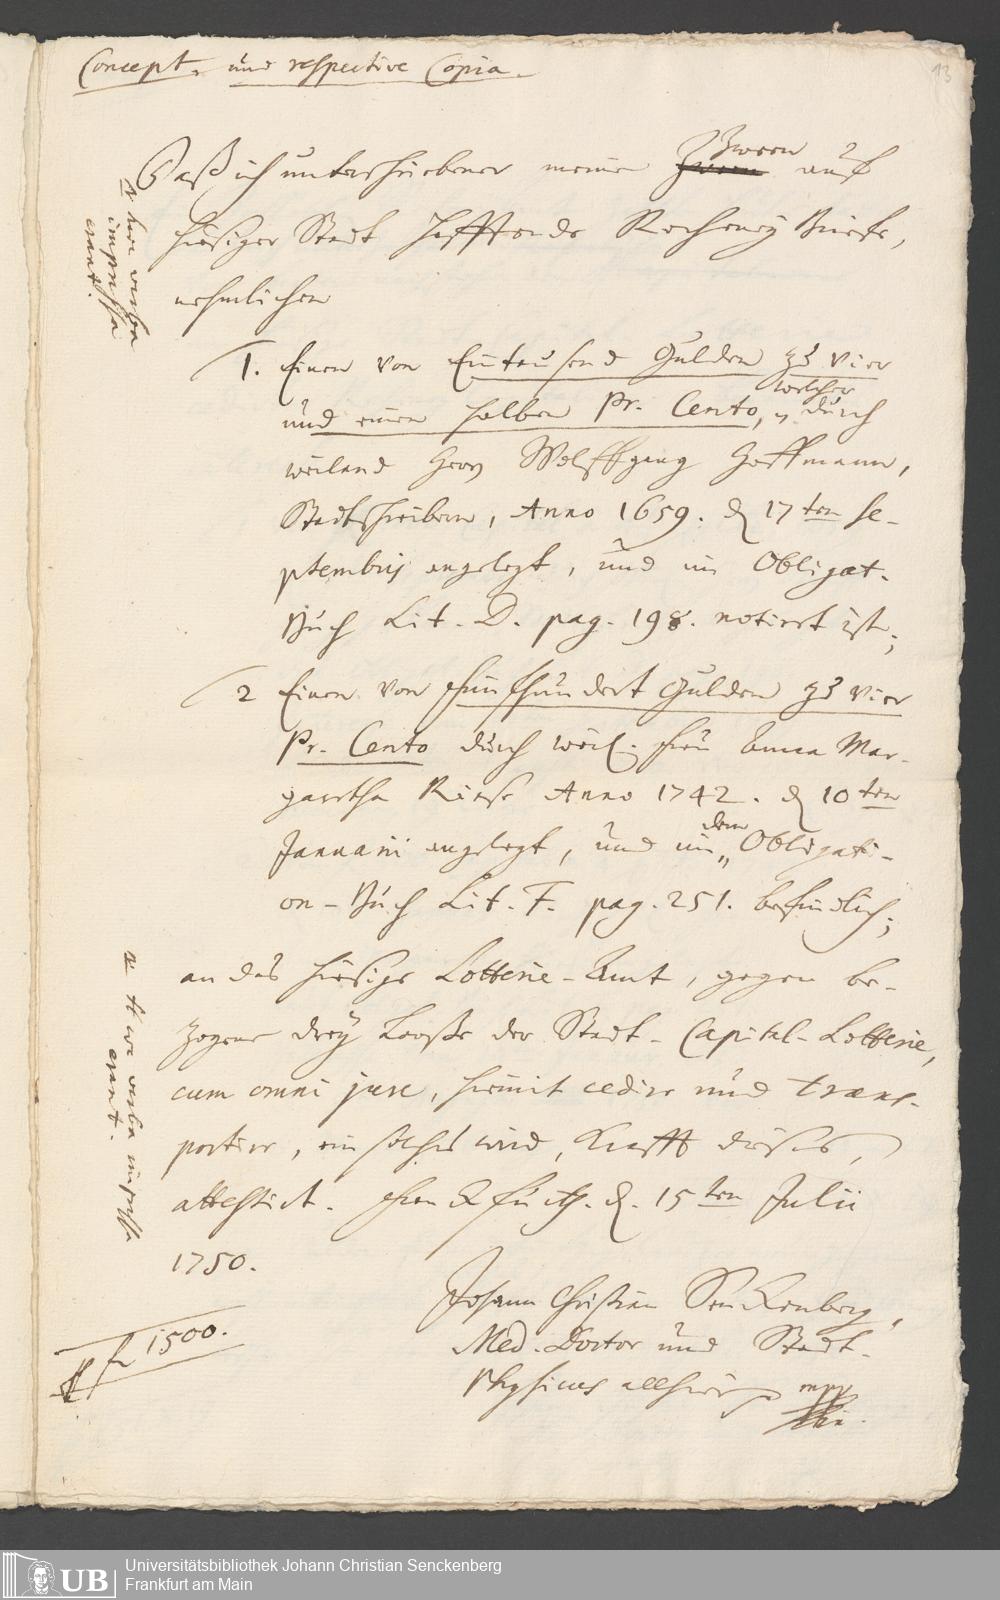 Concept, und respective Copia.
13
Daß ich unterschriebener meine zween auf
zween
hiesiger Stadt hafftende Recheney Briefe,
nehmlichen
1. Einen von Eintausend Gulden zu vier
und einen halben Pr. Cento, welcher durch
weiland Herrn Wolffgang Hoffmann,
Stadtschreibern, Anno 1659. d. 17ten Se-
ptembris angelegt, und im Obligat.
Buch Lit. D. pag. 198. notirt ist;
2 Einen von Fünffhundert Gulden zu vier
Pr. Cento durch weil. Frau Anna Mar-
garetha Riese Anno 1742. d. 10ten
Januarii angelegt, und in dem Obligati-
on-Buch Lit. F. pag. 251. befindlich;
an das hiesige Lotterie-Amt, gegen be-
zogene drey Looße der Stadt-Capital-Lotterie,
cum omni jure, hiemit cedire und trans-
portire, ein solches wird, Krafft dieses,
attestirt. Franckfurth. d. 15ten Julii
1750.
Johann Christian Senckenberg,
Med. Doctor und Stadt-
Physicus allhier mpp
f 1500.
haec verba
impressa
erant.
haec verba impressa
erant.
UB Universitätsbibliothek Johann Christian Senckenberg
Frankfurt am Main